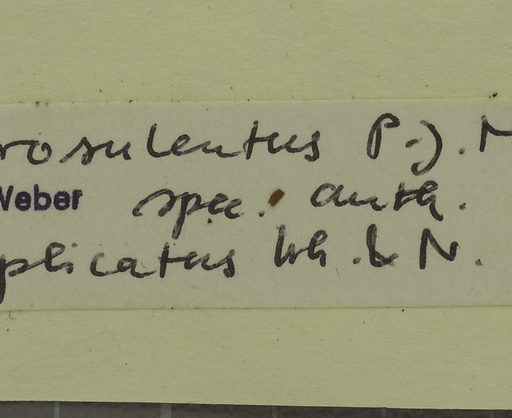 rosulentus P.J. M
Weber spec. auth.
plicatus Wh. & N.